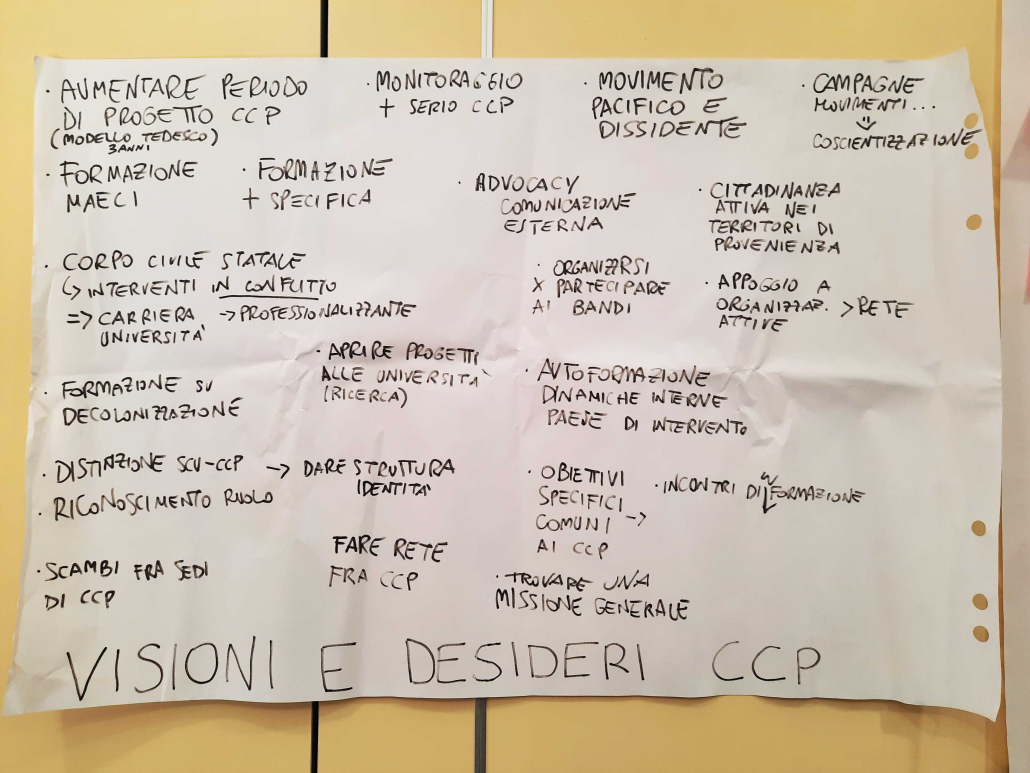 · AUMENTARE PERIODO
DI PROGETTO CCP
(MODELLO TEDESCO)
3ANNI
· MONITORAGGIO
+ SERIO CCP
· MOVIMENTO
PACIFICO E
DISSIDENTE
· CAMPAGNE
MOVIMENTI...
⇓
COSCIENTIZZAZIONE
· FORMAZIONE
MAECI
· FORMAZIONE
+ SPECIFICA
· ADVOCACY
COMUNICAZIONE
ESTERNA
· CITTADINANZA
ATTIVA NEI
TERRITORI DI
PROVENIENZA
· CORPO CIVILE STATALE
↳ INTERVENTI IN CONFLITTO
=> CARRIERA → PROFESSIONALIZZANTE
UNIVERSITÀ
· ORGANIZZRSI
X PARTECIPARE
AI BANDI
· APPOGGIO A
ORGANIZZAZ. > RETE
ATTIVE
· APRIRE PROGETTI
ALLE UNIVERSITÀ
(RICERCA)
· FORMAZIONE SU
DECOLONIZZAZIONE
· AUTOFORMAZIONE
DINAMICHE INTERNE
PAESE DI INTERVENTO
· DISTINZIONE SCU-CCP → DARE STRUTTURA
IDENTITÀ
· RICONOSCIMENTO RUOLO
· OBIETTIVI
SPECIFICI
COMUNI →
AI CCP
· INCONTRI DI FORMAZIONE
· SCAMBI FRA SEDI
DI CCP
FARE RETE
FRA CCP
· TROVARE UNA
MISSIONE GENERALE
VISIONI E DESIDERI CCP